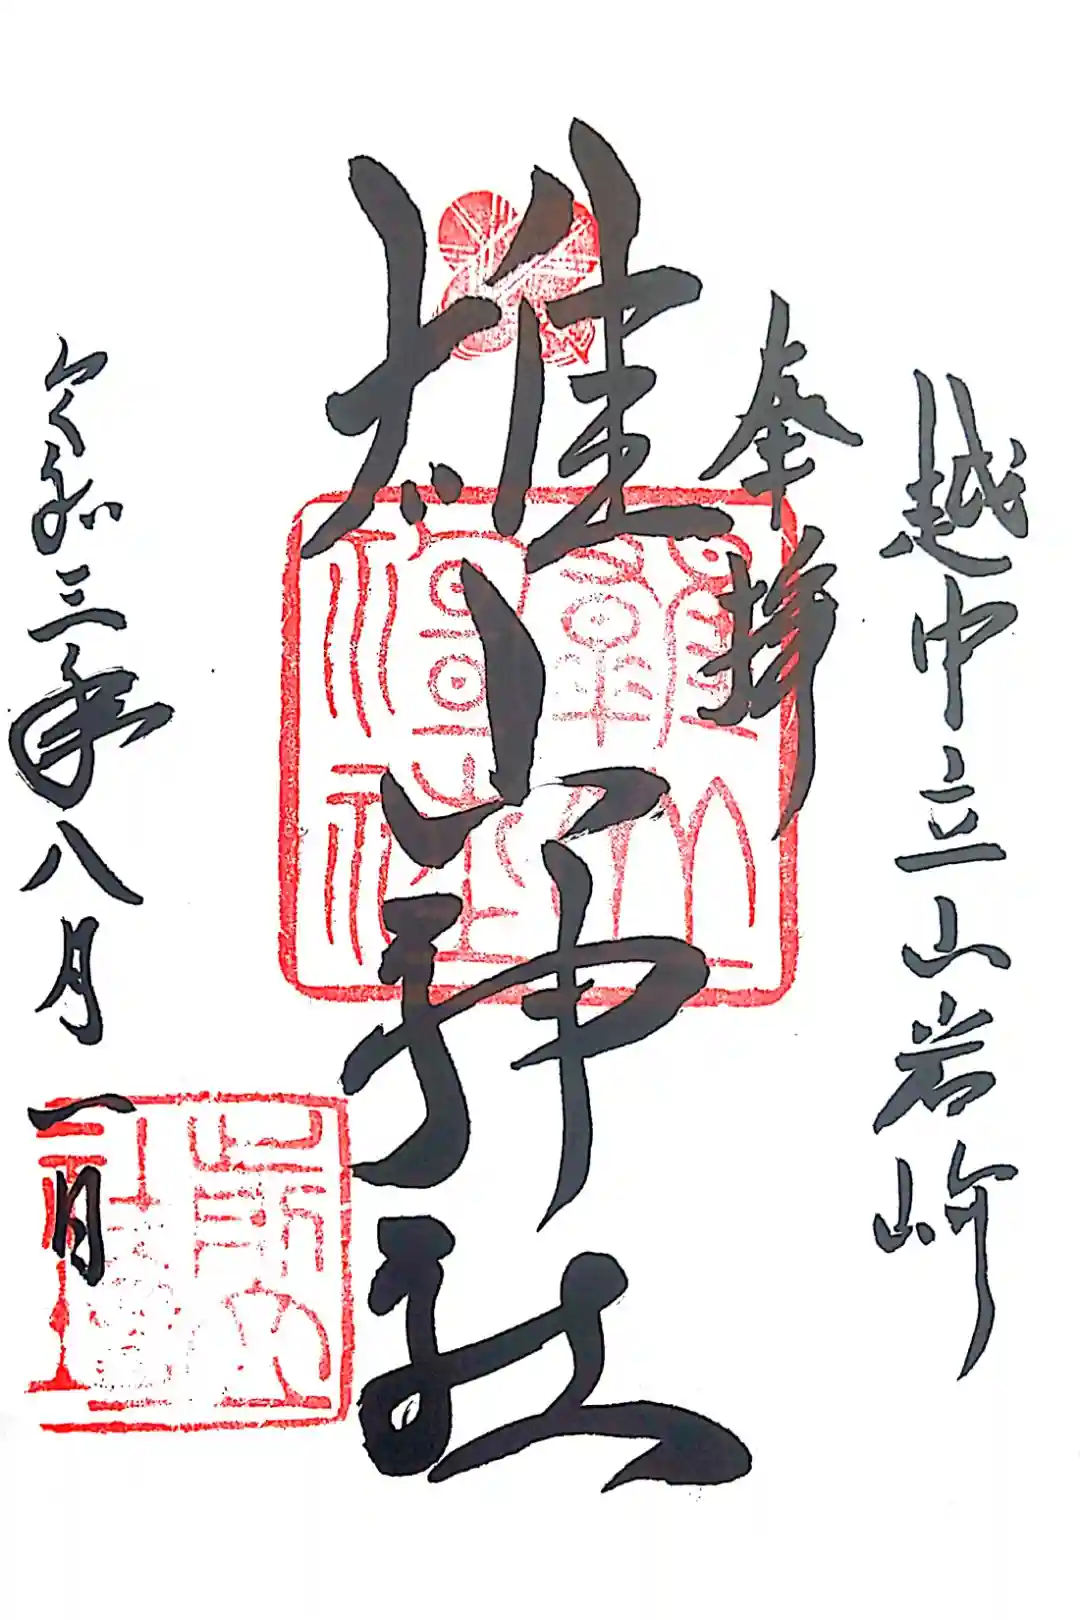 越中立山岩峅
奉拝
雄山神社
雄山神社
令和三年八月一日